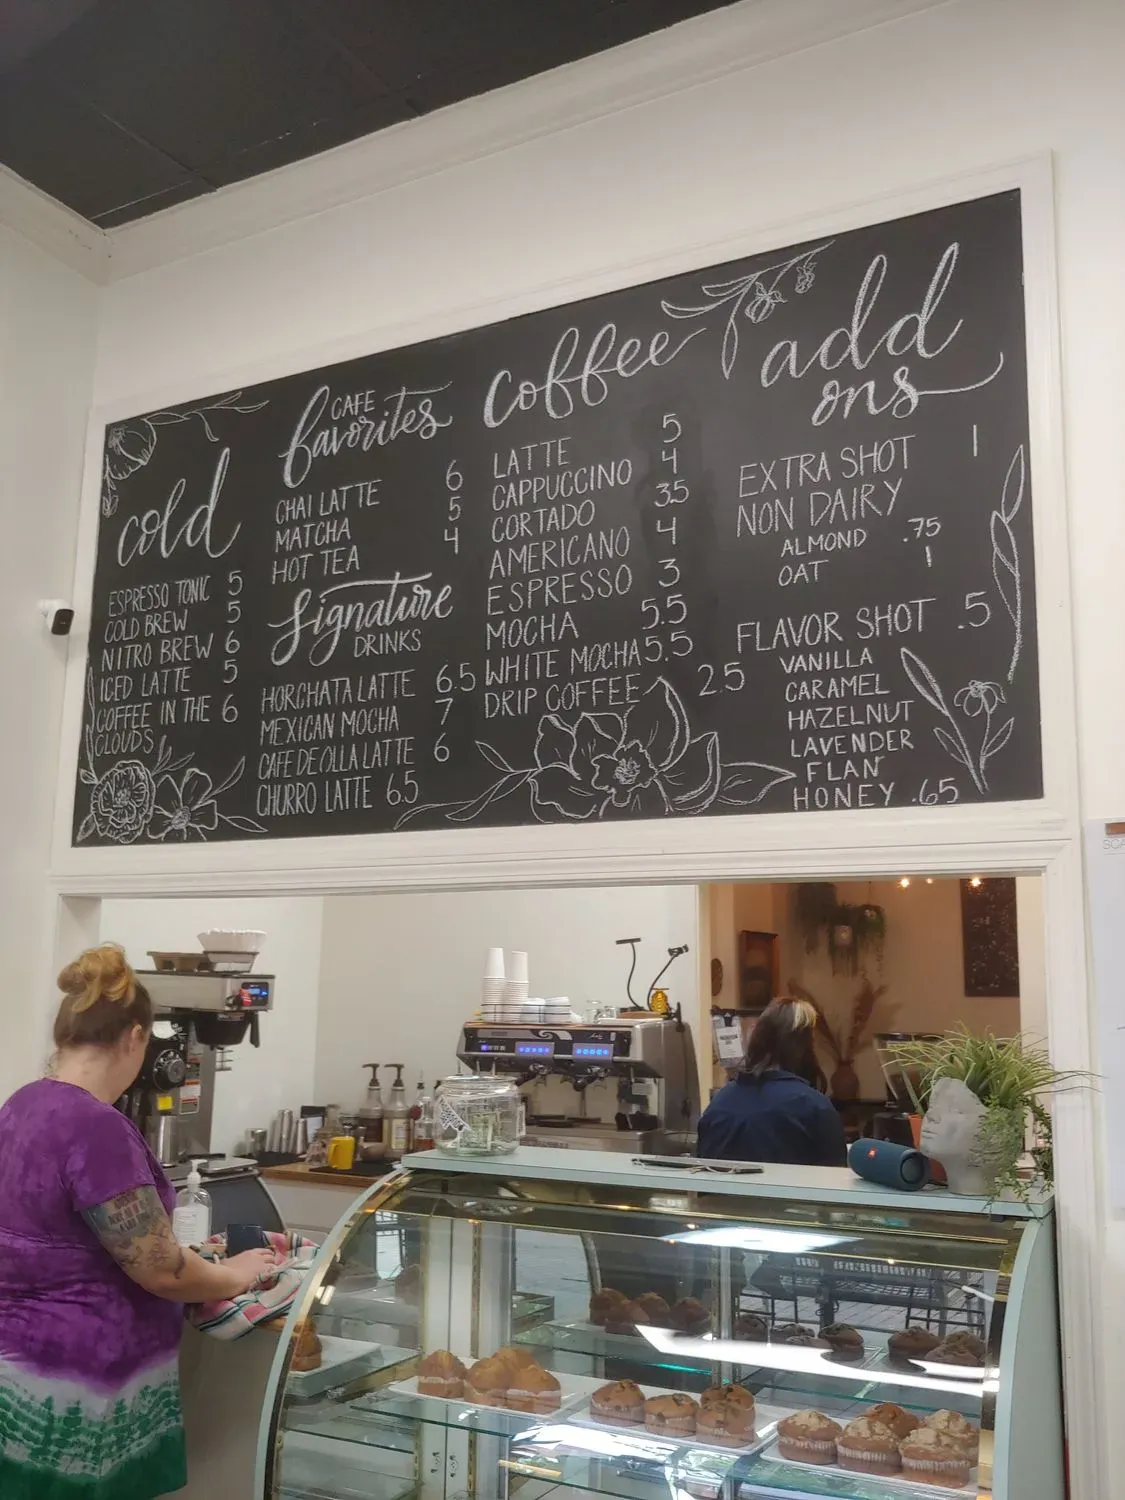 cold
ESPRESSO TONIC 5
COLD BREW 5
NITRO BREW 6
ICED LATTE 5
COFFEE IN THE 6
CLOUDS
CAFE
favorites
CHAI LATTE 6
MATCHA 5
HOT TEA 4
Signature
DRINKS
HORCHATA LATTE 6.5
MEXICAN MOCHA 7
CAFE DE OLLA LATTE 6
CHURRO LATTE 6.5
coffee
LATTE 5
CAPPUCCINO 4
CORTADO 3.5
AMERICANO 4
ESPRESSO 3
MOCHA 5.5
WHITE MOCHA 5.5
DRIP COFFEE 2.5
add
ons
EXTRA SHOT 1
NON DAIRY
ALMOND .75
OAT 1
FLAVOR SHOT .5
VANILLA
CARAMEL
HAZELNUT
LAVENDER
FLAN
HONEY .65